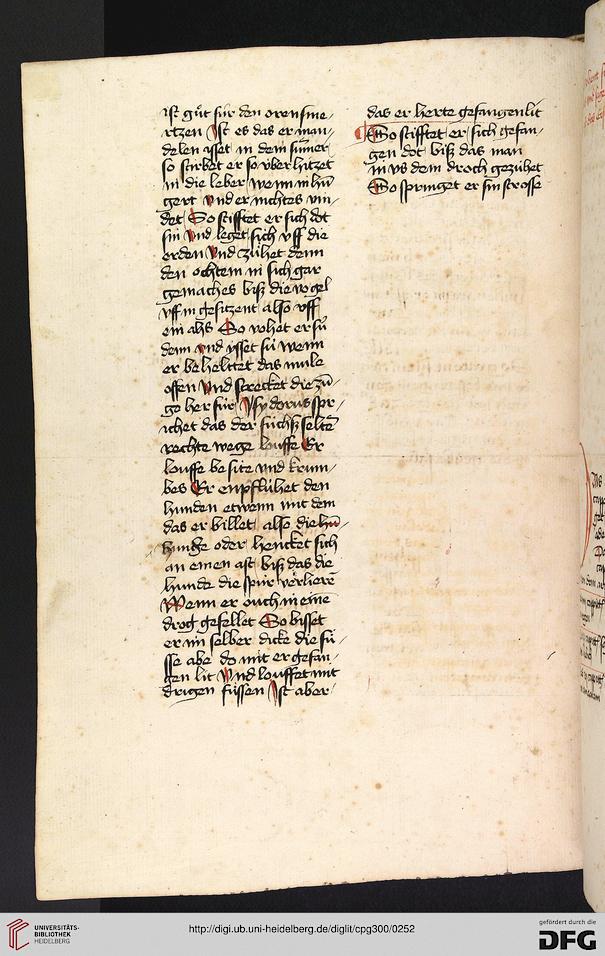 ist gůt für den orensme,
rtzen Ist es das er man,
delen isset in dem sum̄er
so stirbet er so vber hitzet
in die leber wenn in hū
gert vnd er nichtes vin,
det So stifftet er sich dot
sin vnd leget sich vff die
erden Vnd zühet denn
den ochtem in sich gar
gemaches biß die vogel
vff in gesitzent also vff
ein ahs So vohet er sü
denn vnd isset sü wenn
er behelttet das mule
offen Vnd strecket die zū,
ge her für Isydorus spr,
ichet das der füchß selten
rechte wege louffe Er
louffe besite vnd krum,
bes Er enpflühet den
hunden etwenn mit dem
das er billet also die hū,
hunde oder hencket sich
an einen ast biß das die
hunde die spür verliere
Wenn er ouch in eine
drog gefellet So bisset
er im selber dicke die fü,
sse abe do mit er gefan,
gen lit Vnd louffet mit
drigen füssen Ist aber
das er herte gefangen lit
So stifftet er sich gefan,
gen dot biß das man
in vs dem droch gezühet
So springet er sin strosse
UNIVERSITÄTS-
BIBLIOTHEK
HEIDELBERG
http://digi.ub.uni-heidelberg.de/diglit/cpg300/0252
gefördert durch die
DFG